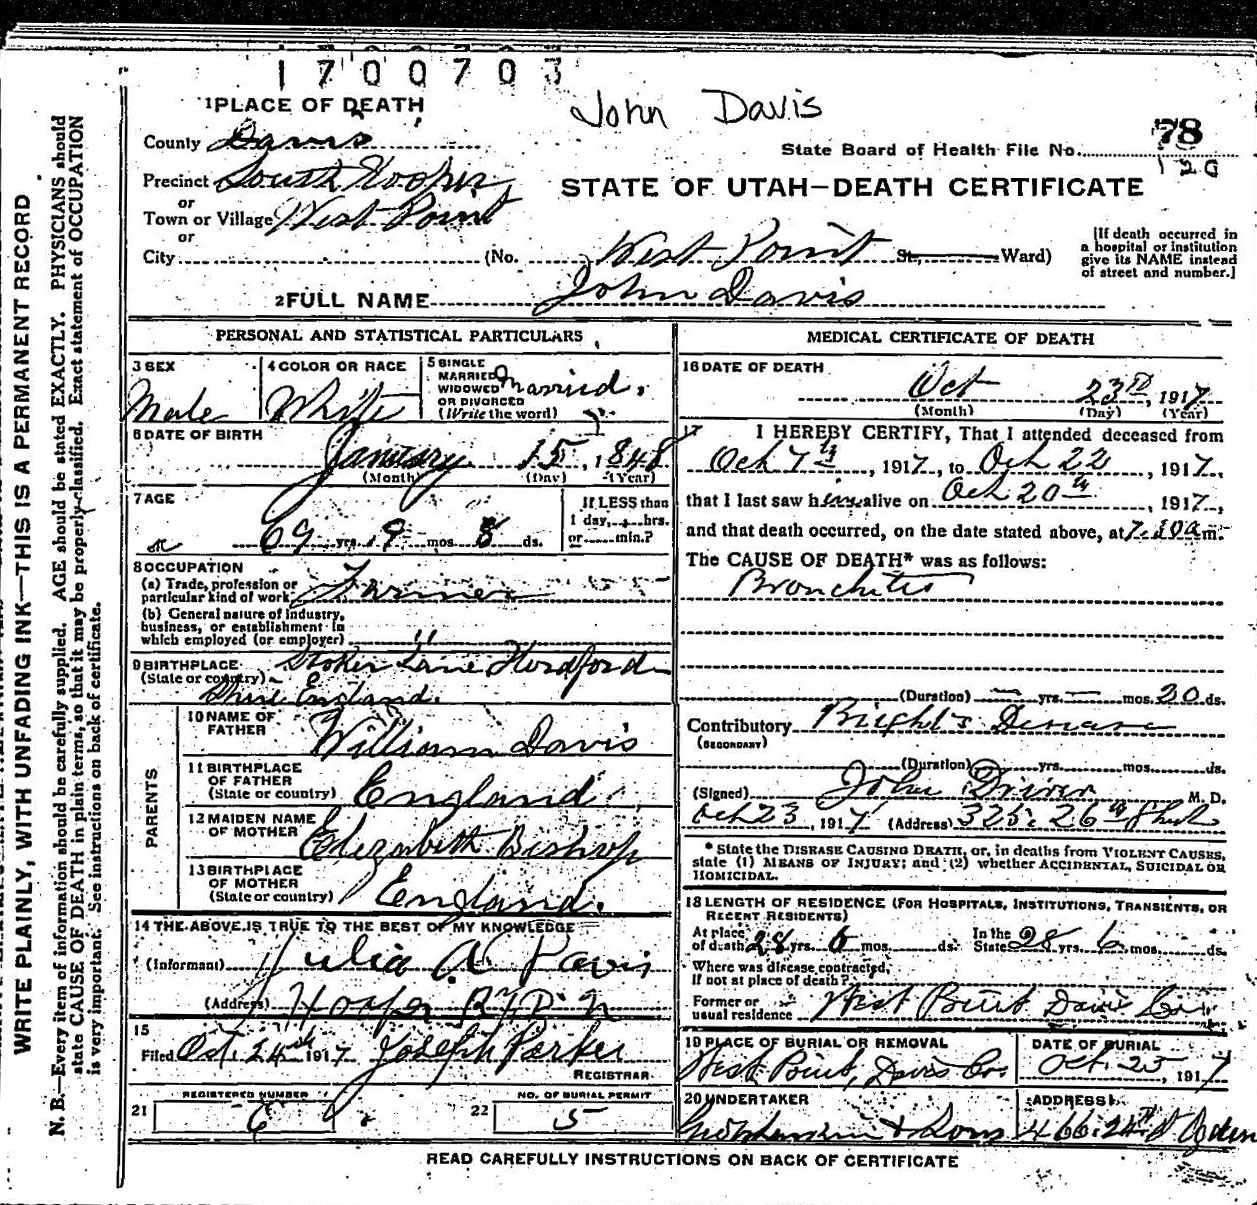 1700703
John Davis
1 PLACE OF DEATH
County Davis
State Board of Health File No. 78
120
Precinct South Hooper
or
Town or Village West Point
STATE OF UTAH—DEATH CERTIFICATE
or
City (No. West Point St., Ward)
[If death occurred in a hospital or institution give its NAME instead of street and number.]
2 FULL NAME John Davis
PERSONAL AND STATISTICAL PARTICULARS
3 SEX
Male
4 COLOR OR RACE
White
5 SINGLE
MARRIED
WIDOWED
OR DIVORCED
(Write the word)
Married.
6 DATE OF BIRTH
January 15, 1848
(Month) (Day) (Year)
7 AGE
69 yrs. 9 mos. 8 ds.
If LESS than
1 day, hrs.
or min.?
8 OCCUPATION
(a) Trade, profession or
particular kind of work Farmer
(b) General nature of industry,
business, or establishment in
which employed (or employer) "
9 BIRTHPLACE
(State or country)
Stoker Lane Herdford
Shire England.
PARENTS
10 NAME OF
FATHER
William Davis
11 BIRTHPLACE
OF FATHER
(State or country) England
12 MAIDEN NAME
OF MOTHER
Elizabeth Bishop
13 BIRTHPLACE
OF MOTHER
(State or country) England.
14 THE ABOVE IS TRUE TO THE BEST OF MY KNOWLEDGE
(Informant) Julia A Davis
(Address) Hooper R.F.D.
15
Filed Oct. 24th 1917 Joseph Parker
REGISTRAR
REGISTERED NUMBER
21 6
NO. OF BURIAL PERMIT
22 5
MEDICAL CERTIFICATE OF DEATH
16 DATE OF DEATH
Oct 23rd, 1917
(Month) (Day) (Year)
17 I HEREBY CERTIFY, That I attended deceased from
Oct 7th, 1917, to Oct 22, 1917,
that I last saw him alive on Oct 20th, 1917,
and that death occurred, on the date stated above, at 7:10a m.
The CAUSE OF DEATH* was as follows:
Bronchitis
(Duration) — yrs. — mos. 20 ds.
Contributory Bright's Disease
(SECONDARY)
(Duration) yrs. mos. ds.
(Signed) John Driver M. D.
Oct 23, 1917 (Address) 325: 26th
* State the DISEASE CAUSING DEATH, or, in deaths from VIOLENT CAUSES,
state (1) MEANS OF INJURY; and (2) whether ACCIDENTAL, SUICIDAL OR
HOMICIDAL.
18 LENGTH OF RESIDENCE (FOR HOSPITALS, INSTITUTIONS, TRANSIENTS, OR
RECENT RESIDENTS)
At place
of death 28 yrs. 6 mos. ds.
In the
State 28 yrs. 6 mos. ds.
Where was disease contracted,
If not at place of death?
Former or
usual residence West Point Davis Co.
19 PLACE OF BURIAL OR REMOVAL
West Point, Davis Co.
DATE OF BURIAL
Oct. 25, 1917
20 UNDERTAKER
& Sons
ADDRESS
466. 24th St Ogden
READ CAREFULLY INSTRUCTIONS ON BACK OF CERTIFICATE
WRITE PLAINLY, WITH UNFADING INK—THIS IS A PERMANENT RECORD
N. B.—Every item of information should be carefully supplied. AGE should be stated EXACTLY. PHYSICIANS should
state CAUSE OF DEATH in plain terms, so that it may be properly classified. Exact statement of OCCUPATION
is very important. See instructions on back of certificate.